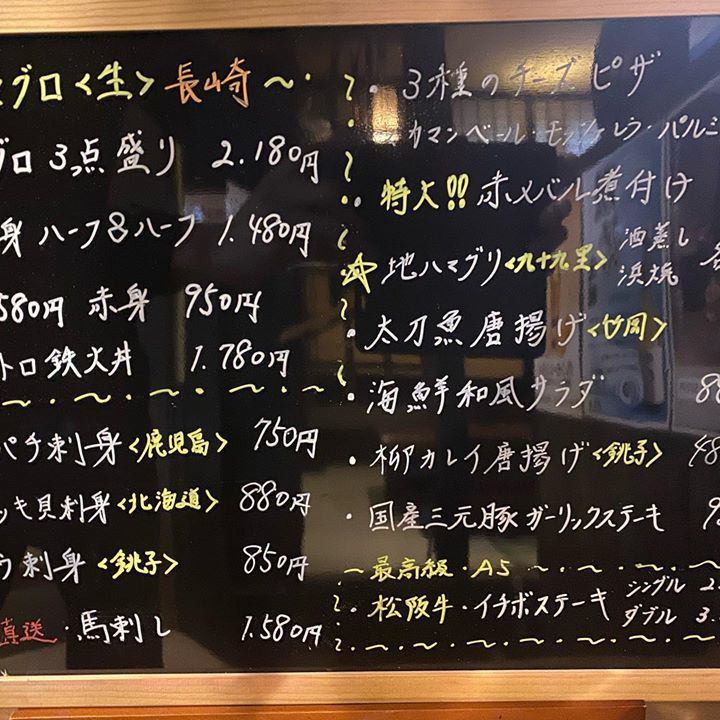 マグロ<生> 長崎
グロ 3点盛り 2.180円
身 ハーフ&ハーフ 1.480円
580円 赤身 950円
トロ鉄火丼 1.780円
パチ刺身<鹿児島> 750円
ッキ貝刺身<北海道> 880円
刺身<銚子> 850円
直送・馬刺し 1.580円
・3種のチーズピザ
カマンベール・モッツァレラ・パルミ
・特大!!赤メバル煮付け
地ハマグリ<九十九里> 酒蒸し 浜焼
・太刀魚唐揚げ<竹岡>
・海鮮和風サラダ
・柳カレイ唐揚げ<銚子> 48
・国産三元豚ガーリックステーキ
最高級・A5
・松阪牛・イチボステーキ シングル 2. ダブル 3.